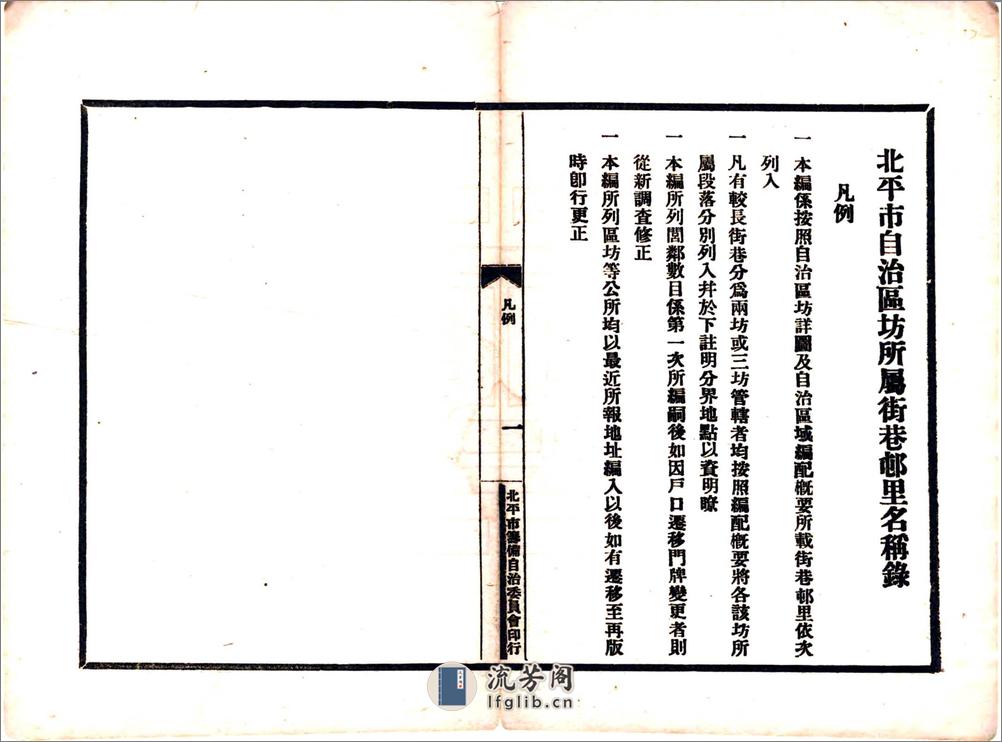 北平市自治區坊所屬街巷邨里名稱錄
凡例
一 本編係按照自治區坊詳圖及自治區域編配概要所載街巷邨里依次
列入
一 凡有較長街巷分爲兩坊或三坊管轄者均按照編配概要將各該坊所
屬段落分別列入幷於下註明分界地點以資明瞭
一 本編所列閭鄰數目係第一次所編嗣後如因戶口遷移門牌變更者則
從新調查修正
一 本編所列區坊等公所均以最近所報地址編入以後如有遷移至再版
時卽行更正
凡例
一
北平市籌備自治委員會印行
流芳阁
lfglib.cn